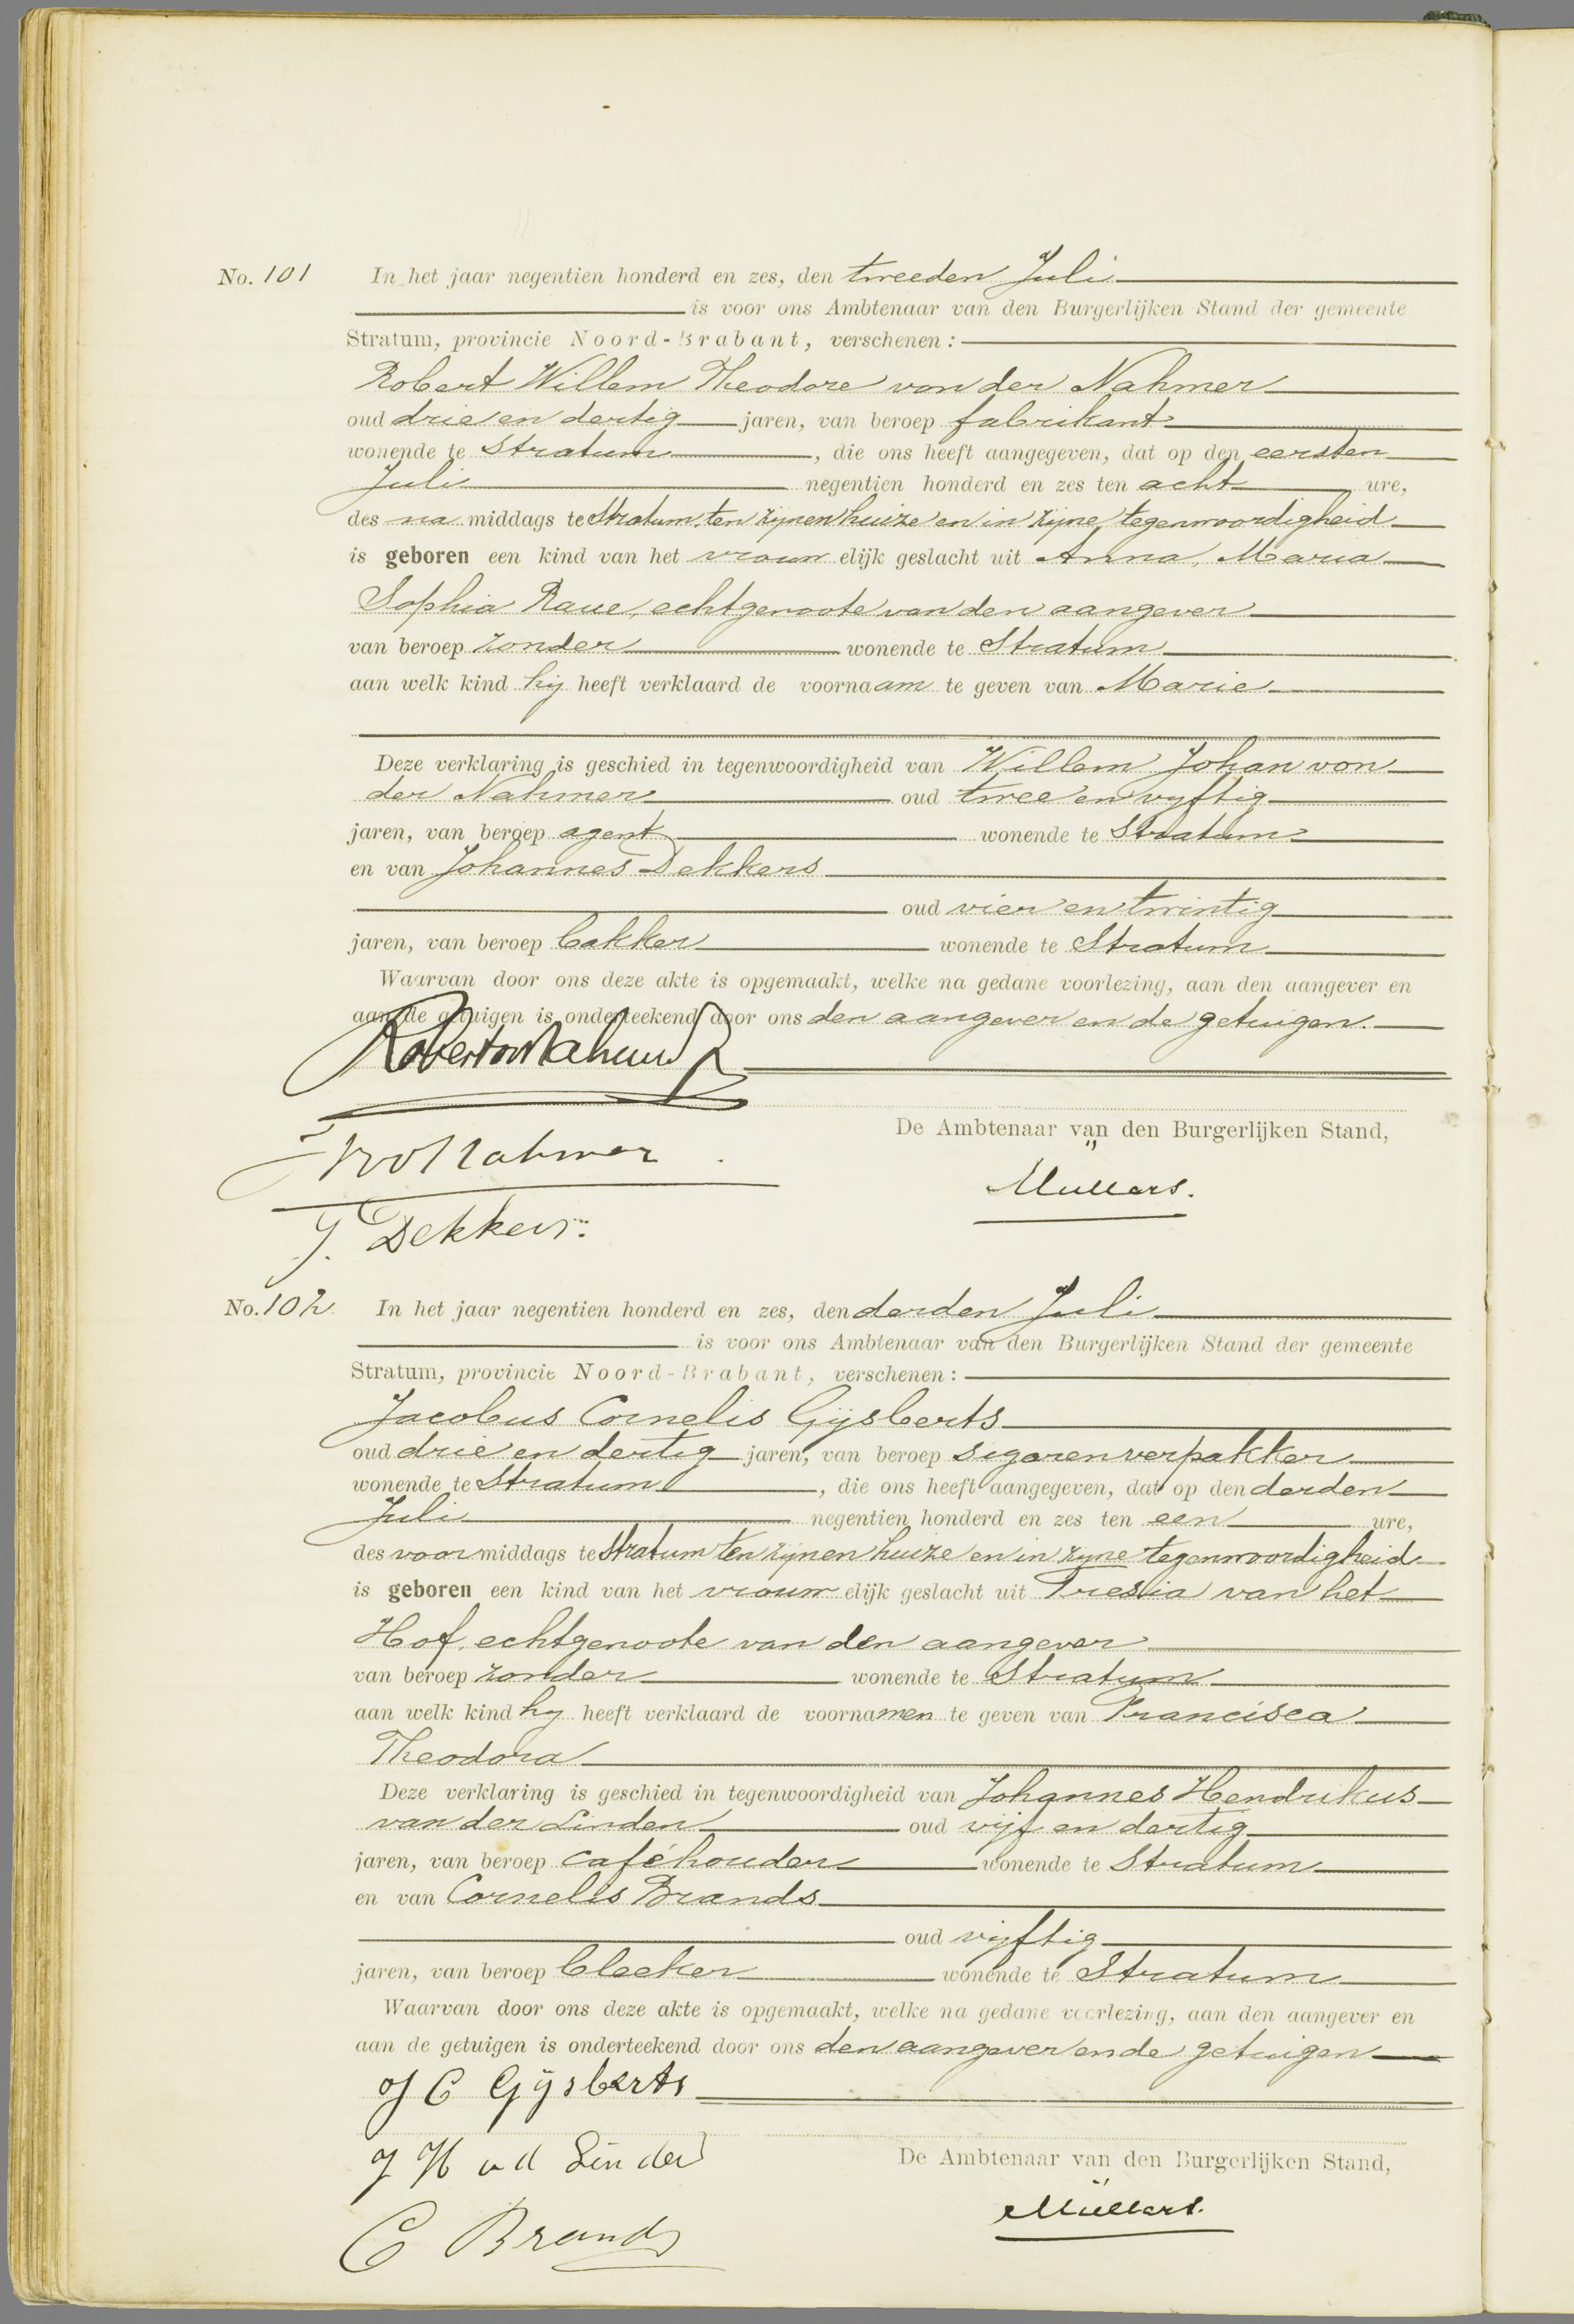 No. 101 In het jaar negentien honderd en zes, den tweeden Juli
is voor ons Ambtenaar van den Burgerlijken Stand der gemeente
Stratum, provincie Noord-Brabant, verschenen:
Robert Willem Theodore von der Nahmer
oud drie en dertig jaren, van beroep fabrikant
wonende te Stratum, die ons heeft aangegeven, dat op den eersten
Juli negentien honderd en zes ten acht ure,
des na middags te Stratum, ten zijnen huize en in zijne tegenwoordigheid
is geboren een kind van het vrouwelijk geslacht uit Anna, Maria
Sophia Raue, echtgenoote van den aangever
van beroep zonder wonende te Stratum
aan welk kind hij heeft verklaard de voornaam te geven van Marie
Deze verklaring is geschied in tegenwoordigheid van Willem Johan von
der Nahmer oud twee en vyftig
jaren, van beroep agent wonende te Stratum
en van Johannes Dekkers
oud vier en twintig
jaren, van beroep bakker wonende te Stratum
Waarvan door ons deze akte is opgemaakt, welke na gedane voorlezing, aan den aangever en
aan de getuigen is onderteekend door ons den aangever en de getuigen.
De Ambtenaar van den Burgerlijken Stand,
Müllers.
J. Dekkers.
No. 102 In het jaar negentien honderd en zes, den derden Juli
is voor ons Ambtenaar van den Burgerlijken Stand der gemeente
Stratum, provincie Noord-Brabant, verschenen:
Jacobus Cornelis Gijsberts
oud drie en dertig jaren, van beroep sigarenverpakker
wonende te Stratum, die ons heeft aangegeven, dat op den derden
Juli negentien honderd en zes ten een ure,
des voormiddags te Stratum ten zijnen huize en in zyne tegenwoordigheid
is geboren een kind van het vrouwelijk geslacht uit Tresia van het
Hof, echtgenoote van den aangever
van beroep zonder wonende te Stratum
aan welk kind hy heeft verklaard de voornamen te geven van Francisca
Theodora
Deze verklaring is geschied in tegenwoordigheid van Johannes Hendrikus
van der Linden oud vijf en dertig
jaren, van beroep caféhouder wonende te Stratum
en van Cornelis Brands
oud vijftig
jaren, van beroep bleeker wonende te Stratum
Waarvan door ons deze akte is opgemaakt, welke na gedane voorlezing, aan den aangever en
aan de getuigen is onderteekend door ons den aangever en de getuigen
J C Gijsberts
J H v d Linden
De Ambtenaar van den Burgerlijken Stand,
Müllers.
C Brands